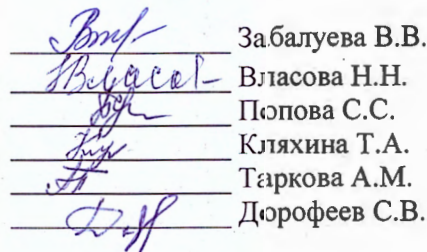 Забалуева В.В.
Власова Н.Н.
Попова С.С.
Кляхина Т.А.
Таркова А.М.
Дорофеев С.В.